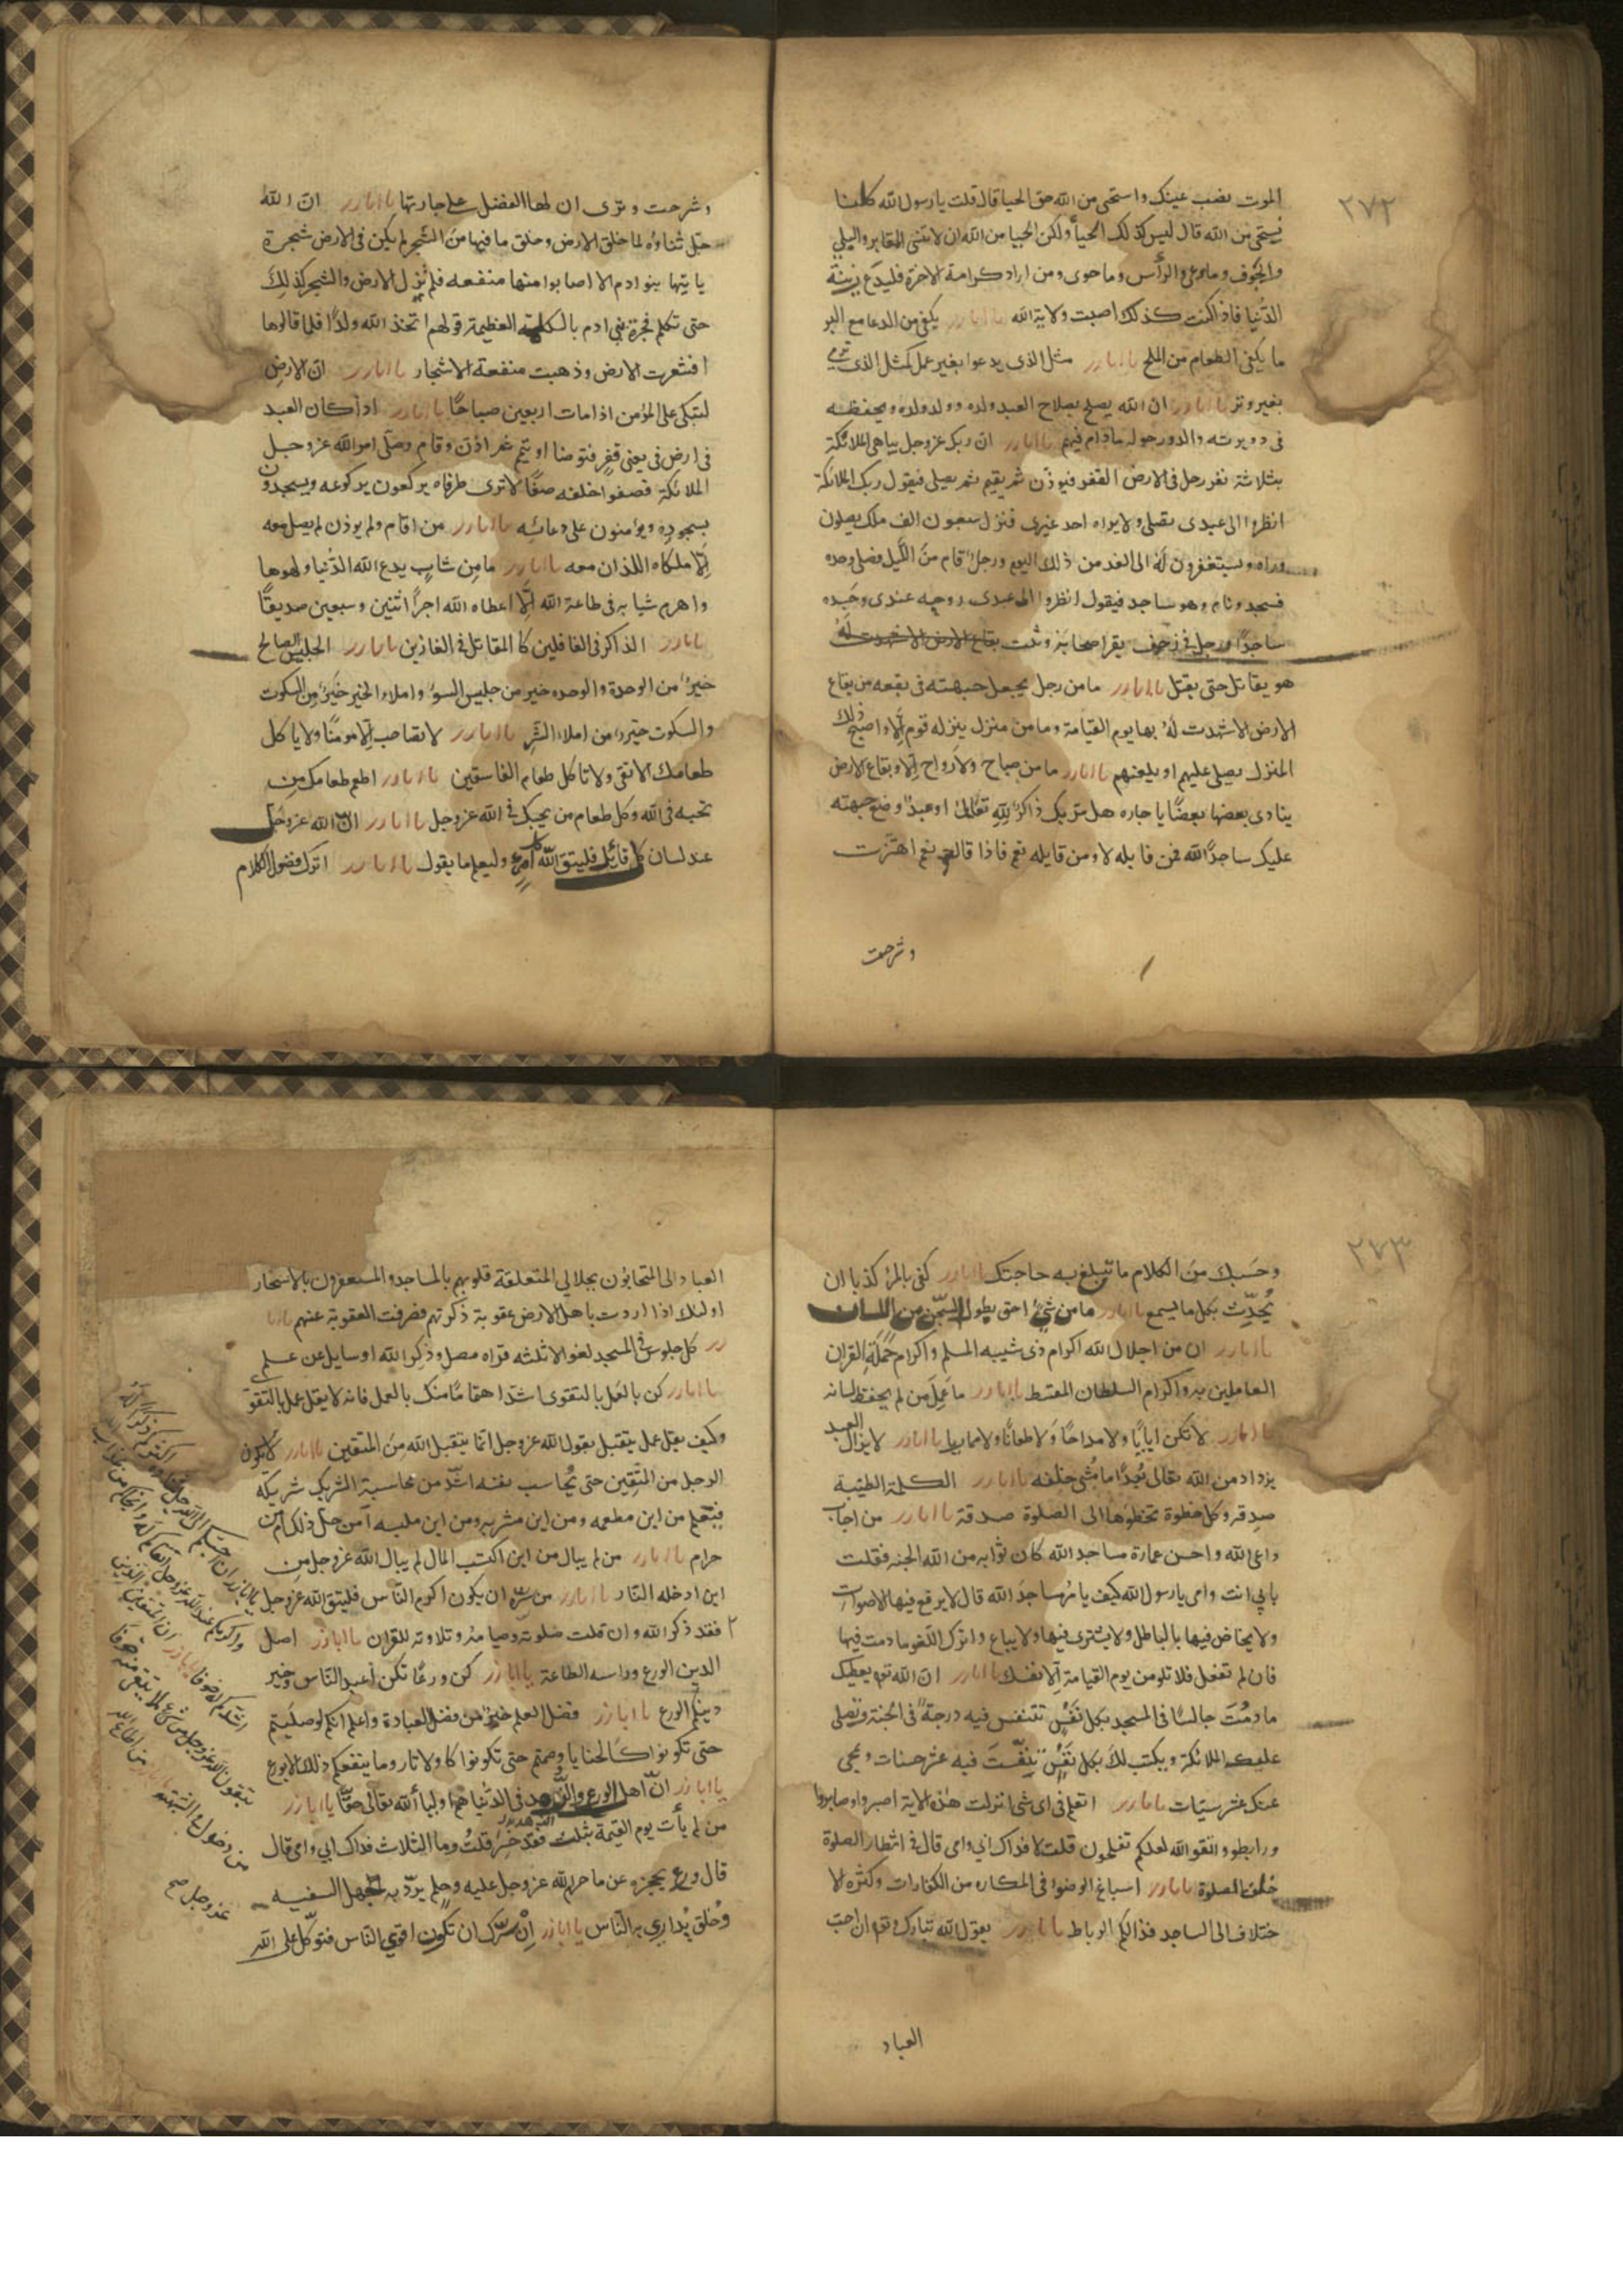 ٢٧٢
الموت نصب عينك واستحى من الله حق الحيا قال قلت يا رسول الله كلنا
نستحى من الله قال ليس كذلك الحيأ ولكن الحيا من الله ان لا تنسى المقابر والبلى
والجوف وما وعى والرأس وما حوى ومن اراد كرامة الاخرة فليدع زينة
الدنيا فاذا كنت كذلك اصبت ولاية الله يا اباذر يكفى من الدعا مع البر
ما يكفى الطعام من الملح يا اباذر مثل الذى يدعوا بغير عمل كمثل الذى يرمى
بغير وتر يا اباذر ان الله يصلح بصلاح العبد ولده وولد ولده ويحفظه
فى دويرته والدور حوله مادام فيهم يا اباذر ان ربك عز وجل يباهى الملائكة
بثلاثة نفر رجل فى الارض القفر فيوذن ثم يقيم ثم يصلى فيقول ربك الملائكة
انظروا الى عبدى يصلى ولا يراه احد غيرى فنزل سبعون الف ملك يصلون
وراه ويستغفرون له الى الغد من ذلك اليوم ورجل قام من الليل فصلى وحده
فسجد ونام وهو ساجد فيقول انظروا الى عبدى روحه عندى وجسده
ساجدا ورجل فى زحف يفر اصحابه وثبت
هو يقاتل حتى يقتل يا اباذر ما من رجل يجعل جبهته فى بقعه من بقاع
الارض الا شهدت له بها يوم القيامة وما من منزل ينزله قوم الا واصبح ذلك
المنزل يصلى عليهم او يلعنهم يا اباذر ما من صباح ولا رواح الا وبقاع الارض
ينادى بعضها بعضا يا جاره هل مر بك ذاكر لله تعالى او عبد وضع جبهته
عليك ساجدا لله فمن قايله لا ومن قايله نعم فاذا قالت نعم اهتزت
وشرحت
وشرحت وترى ان لها الفضل على جارتها يا اباذر ان الله
جل ثناؤه لما خلق الارض وخلق ما فيها من الشجر لم يكن فى الارض شجرة
ياتيها بنو ادم الا اصابوا منها منفعه فلم تزل الارض والشجر كذلك
حتى تكلم فجرة بنى ادم بالكلمة العظيمة قولهم اتخذ الله ولدا فلما قالوها
اقشعرت الارض وذهبت منفعة الاشجار يا اباذر ان الارض
لتبكى على المؤمن اذا مات اربعين صباحا يا اباذر اذا كان العبد
فى ارض فى يعنى قفر فتوضا او تيمم ثم اذن وقام وصلى امر الله عز وجل
الملائكة فصفوا خلفه صفا لا ترى طرفاه يركعون بركوعه ويسجدون
بسجوده ويؤمنون على دعائه يا اباذر من اقام ولم يوذن لم يصل معه
الا ملكاه اللذان معه يا اباذر ما من شاب يدع الله الدنيا ولهوها
واهرم شبابه فى طاعة الله الا اعطاه الله اجر اثنين وسبعين صديقا
يا اباذر الذاكر فى الغافلين كالمقاتل فى الغازين يا اباذر الجليس الصالح
خير من الوحدة والوحده خير من جليس السوء واملاء الخير خير من السكوت
والسكوت خير من املاء الشر يا اباذر لا تصاحب الا مومنا ولا ياكل
طعامك الا تقى ولا تاكل طعام الفاسقين يا اباذر اطعم طعامك من
تحبه فى الله وكل طعام من يحبك فى الله عز وجل يا اباذر ان الله عز وجل
عند لسان كل قائل فليتق الله امرء وليعلم ما يقول يا اباذر اترك فضول الكلام
٢٧٣
وحسبك من الكلام ما تبلغ به حاجتك يا اباذر كفى بالمرء كذبا ان
يحدث بكل ما يسمع يا اباذر ما من شئ احق بطول السجن من اللسان
يا اباذر ان من اجلال الله اكرام ذى شيبه المسلم واكرام حملة القران
العاملين به واكرام السلطان المقسط يا اباذر ما عمل من لم يحفظ لسانه
يا اباذر لا تكن ولا مداحا ولا طعانا ولا مماريا يا اباذر لا يزال العبد
يزداد من الله تعالى بعدا ما خلقه يا اباذر الكلمة الطيبة
صدقه وكل خطوة تخطوها الى الصلوة صدقة يا اباذر من اجاب
داعى الله واحسن عمارة مساجد الله كان ثوابه من الله الجنه فقلت
بابى انت وامى يا رسول الله كيف يا مساجد الله قال لا يرفع فيها الاصوات
ولا يخاض فيها بالباطل ولا يشترى فيها ولا يباع واترك اللغو ما دمت فيها
فان لم تفعل فلا تلومن يوم القيامة الا نفسك يا اباذر ان الله تعـ يعطيك
ما دمت جالسا فى المسجد بكل نفس تتنفس فيه درجة فى الجنة وتصلى
عليك الملائكة ويكتب لك بكل نفس تنفست فيه عشر حسنات وتمحى
عنك عشر سيئات يا اباذر اتعلم فى اى شى انزلت هذه الاية اصبروا وصابروا
ورابطوا واتقوا الله لعلكم تفلحون قلت لا فداك ابى وامى قال فى انتظار الصلوة
خلف الصلوة يا اباذر اسباغ الوضوء فى المكاره من الكفارات وكثرة الا
ختلاف الى المساجد فذالكم الرباط يا اباذر يقول الله تبارك وتعـ ان احب
العباد
العباد الى المتحابون بجلالى المتعلقة قلوبهم بالمساجد والمستغفرون بالاسحار
اولئك اذا اردت باهل الارض عقوبة ذكرتهم فصرفت العقوبة عنهم يا ابا
ذر كل جلوس فى المسجد لغو الا ثلثه قراه مصل وذكر الله او سايل عن علم
يا اباذر كن بالعمل بالتقوى اشد اهتماما منك بالعمل فانه لا يقل عمل بالتقوى
وكيف يقل عمل يتقبل بقول الله عز وجل انما يتقبل الله من المتقين يا اباذر لا يكون
الرجل من المتقين حتى يحاسب نفسه اشد من محاسبة الشريك شريكه
فيعلم من اين مطعمه ومن اين مشربه ومن اين ملبسه أمن حل ذلك أم من
حرام يا اباذر من لم يبال من اين اكتسب المال لم يبال الله عز وجل من
اين ادخله النار يا اباذر من سره ان يكون اكرم الناس فليتق الله عز وجل
فقد ذكر الله وان قلت صلوته وصيامه وتلاوته للقران يا اباذر اصل
الدين الورع وراسه الطاعة يا اباذر كن ورعا تكن أعبد الناس وخير
دينكم الورع يا اباذر فضل العلم خير من فضل العبادة واعلم انكم لو صليتم
حتى تكونوا كالحنايا وصمتم حتى تكونوا كالاوتار وما ينفعكم ذلك الا بورع
يا اباذر ان أهل الورع والزهد فى الدنيا هم اوليأ الله تعالى حقا يا اباذر
من لم يأت يوم القيمة بثلث فقد خسر قلت وما الثلاث فداك ابى وامى قال
قال ورع يحجزه عن ما حرم الله عز وجل عليه وحلم يرد به جهل السفيه
وخلق يدارى به الناس يا اباذر ان سرك ان تكون اقوى الناس فتوكل على الله
يا اباذر ان احبكم الى الله جل ثناؤه اكثركم ذكرا له
واكرمكم عند الله عز وجل اتقاكم له وانجاكم من عذاب الله
اشدكم له خوفا يا اباذر ان المتقين الذين
يتقون الله عز وجل من شئ لا يتقى منه خوفا
من دخول الشبهه يا اباذر من اطاع الله
عز وجل صح